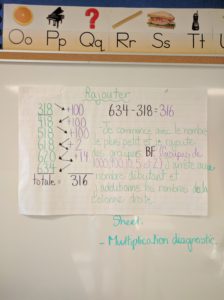 Oo Pp Qq Rr Ss Tt Uu
Rajouter
634 - 318 = 316
318 +100
418 +100
518 +100
618 + 2
620 +14
634
totale = 316
Je commence avec le nombre
le plus petit et je rajoute
des groupes BÉ
nombre débutant et
j'additionne les nombres de la
colonne droite.
Sheet
- Multiplication diagnostic